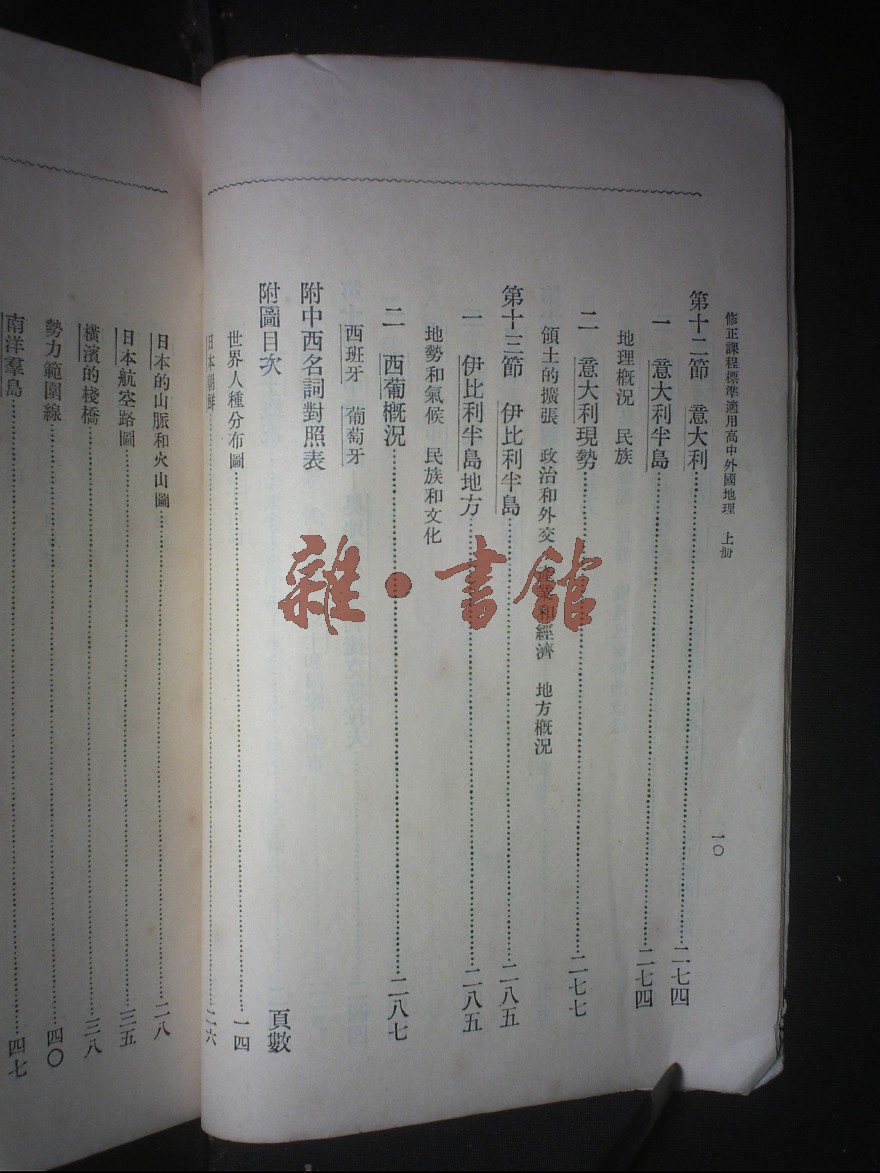 修正課程標準適用高中外國地理　上册
一〇
第十二節　意大利……二七四
一　意大利半島……二七四
地理概況　民族
二　意大利現勢……二七七
領土的擴張　政治和外交　和經濟　地方概況
第十三節　伊比利半島……二八五
一　伊比利半島地方……二八五
地勢和氣候　民族和文化
二　西葡概況……二八七
西班牙　葡萄牙
附中西名詞對照表
附圖目次　頁數
世界人種分布圖……一四
日本朝鮮……二六
日本的山脈和火山圖……二八
日本航空路圖……三五
橫濱的棧橋……三八
勢力範圍線……四〇
南洋羣島……四七
雜·書館